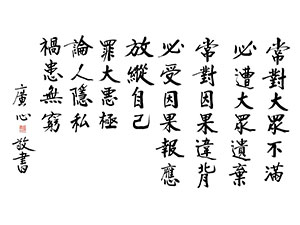 常對大眾不滿
必遭大眾遺棄
常對因果違背
必受因果報應
放縱自己
罪大惡極
論人隱私
禍患無窮
廣心
敬書